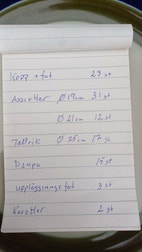 Kopp + fat 29 st
Assietter Ø 19cm 31 st
Ø 21cm 12 st
Tallrik Ø 25 cm 17 st
15 st
uppläggningsfat 3 st
2 st